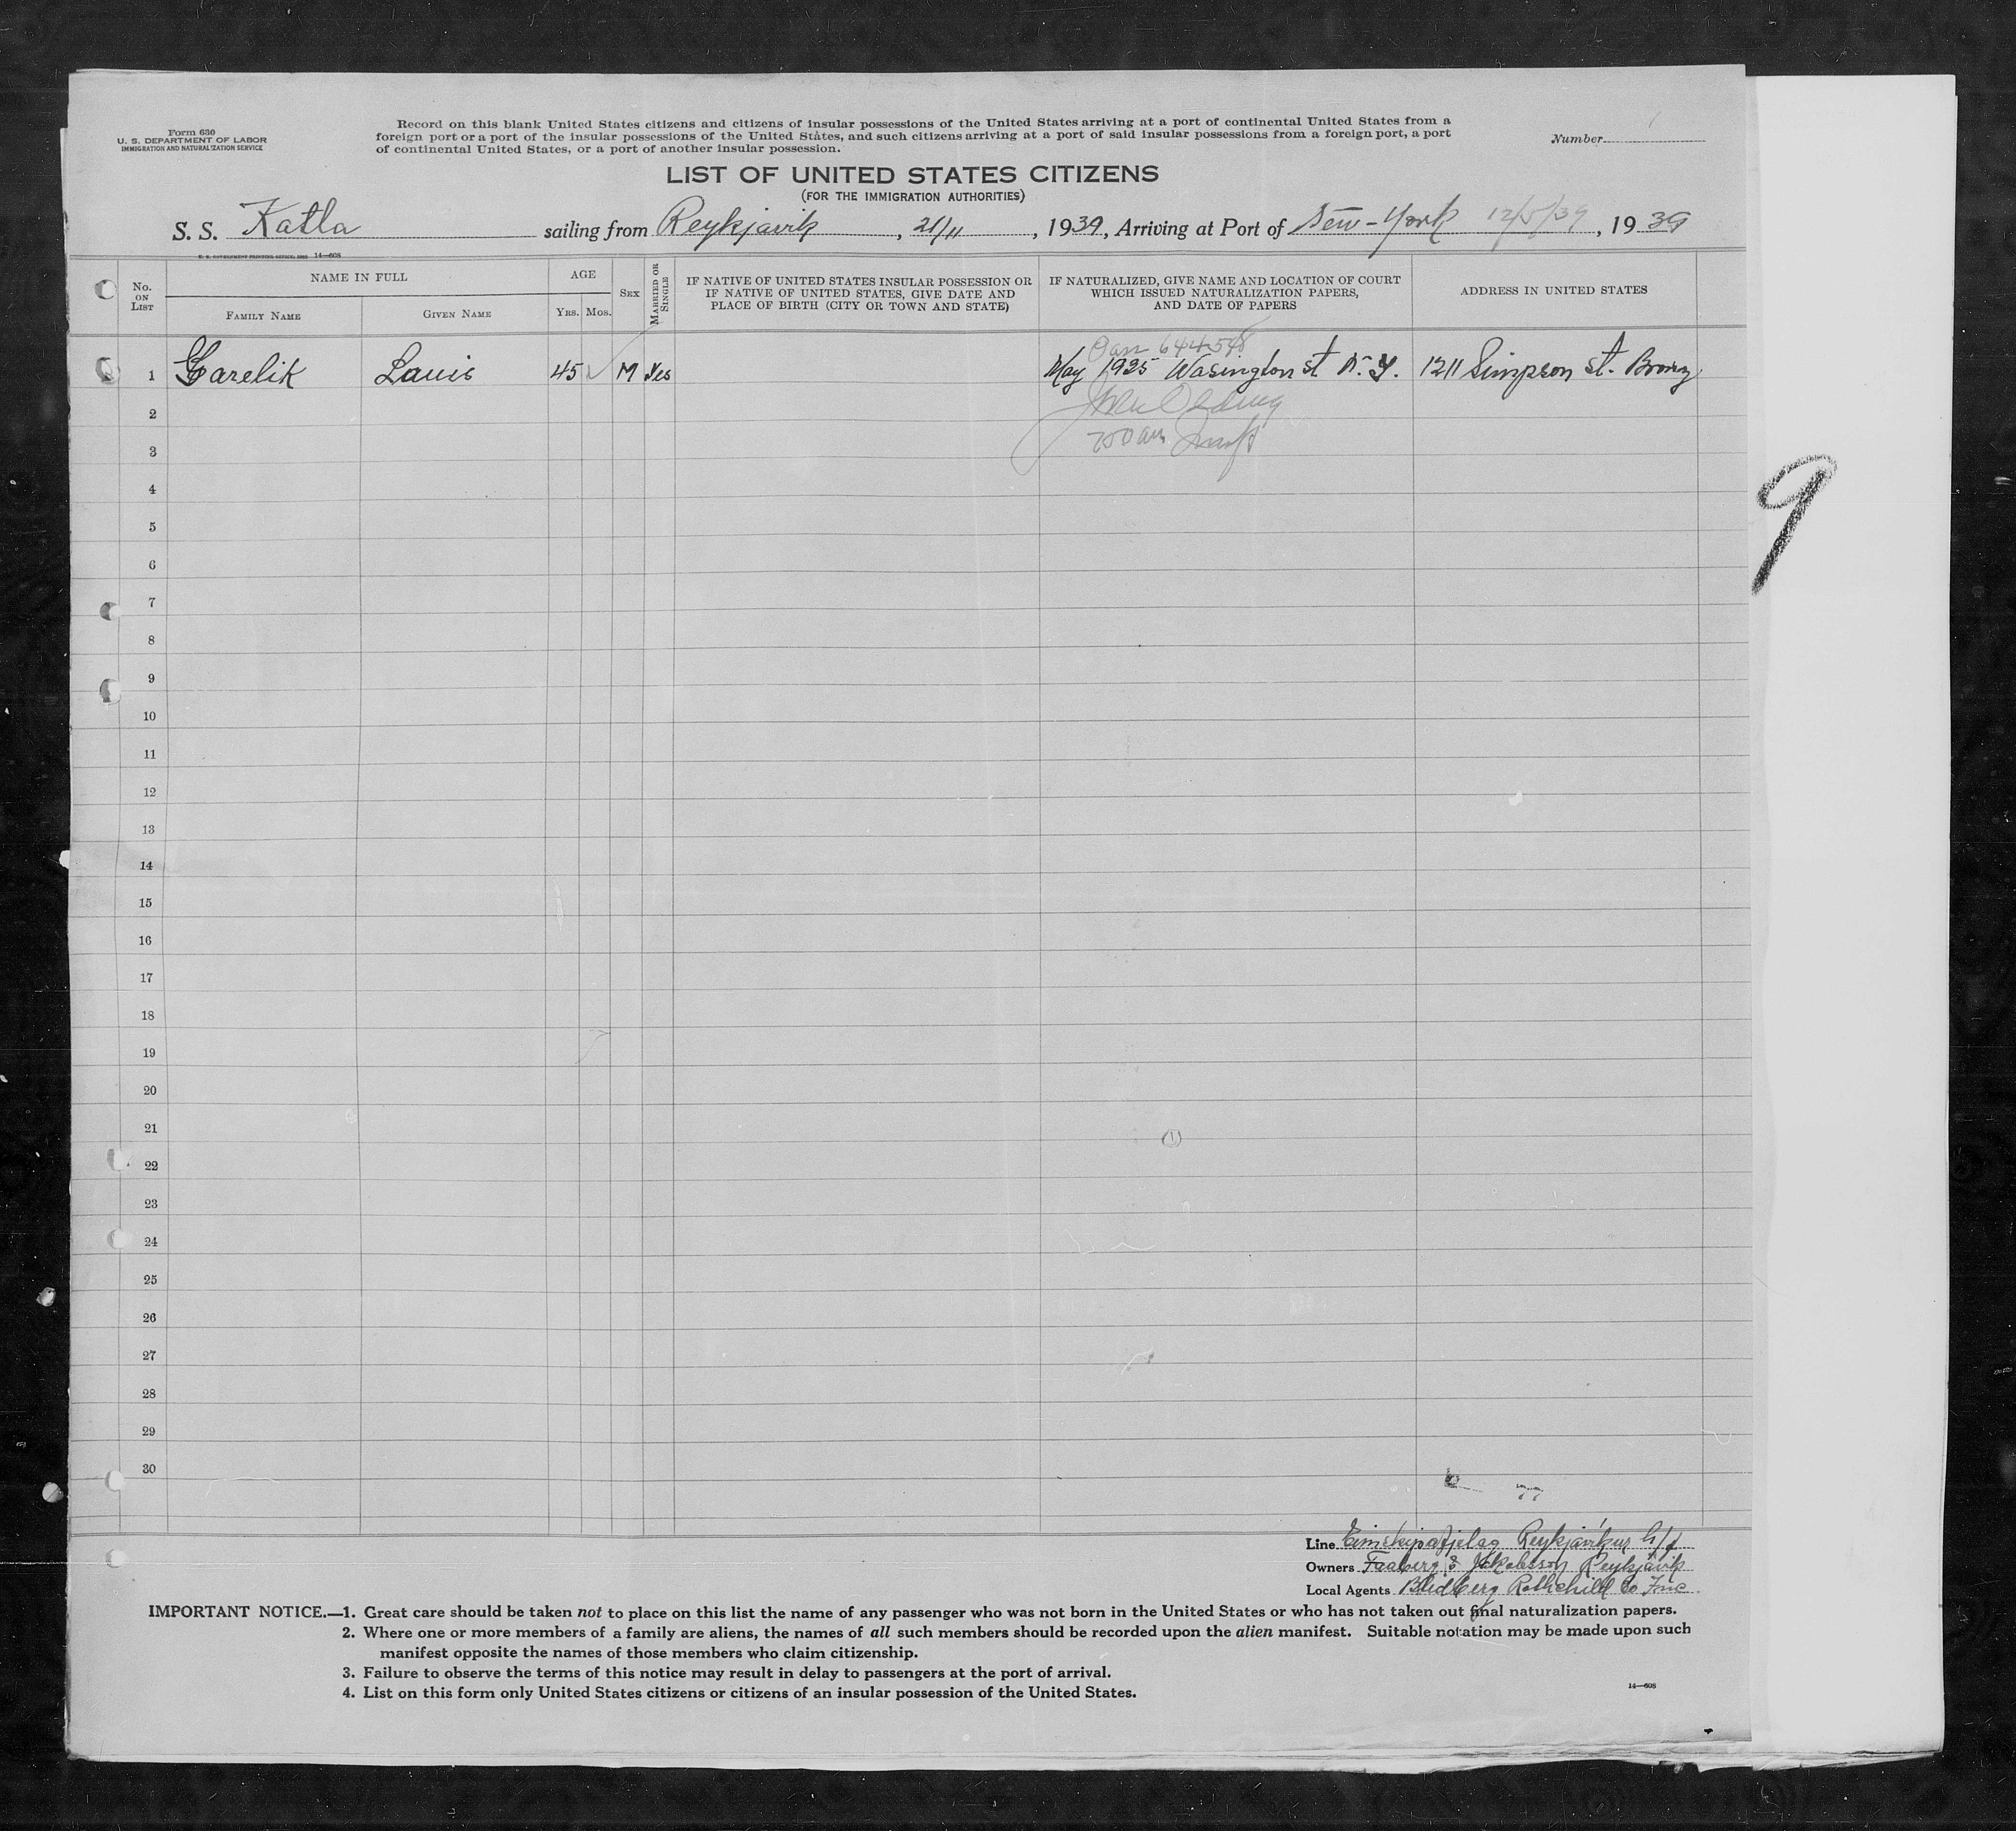 Form 630
U. S. DEPARTMENT OF LABOR
IMMIGRATION AND NATURALIZATION SERVICE
Record on this blank United States citizens and citizens of insular possessions of the United States arriving at a port of continental United States from a
foreign port or a port of the insular possessions of the United States, and such citizens arriving at a port of said insular possessions from a foreign port, a port
of continental United States, or a port of another insular possession.
Number
LIST OF UNITED STATES CITIZENS
(FOR THE IMMIGRATION AUTHORITIES)
S. S. Katla sailing from Reykjavik, 21/11, 1939, Arriving at Port of New-York 12/5/39, 1939
14—608
No. ON LIST
NAME IN FULL
FAMILY NAME
GIVEN NAME
AGE
YRS. MOS.
SEX
MARRIED OR SINGLE
IF NATIVE OF UNITED STATES INSULAR POSSESSION OR
IF NATIVE OF UNITED STATES, GIVE DATE AND
PLACE OF BIRTH (CITY OR TOWN AND STATE)
IF NATURALIZED, GIVE NAME AND LOCATION OF COURT
WHICH ISSUED NATURALIZATION PAPERS,
AND DATE OF PAPERS
ADDRESS IN UNITED STATES
644548
1 Garelik Lauis 45 M Yes May 1925 Wasington st N.Y. 1211 Simpson st. Bronx
2
3
4
5
6
7
8
9
10
11
12
13
14
15
16
17
18
19
20
21
22
23
24
25
26
27
28
29
30
9
Line Eimskipafjelag Reykjavikur h/f
Owners Faaberg & Jakobsson Reykjavik
Local Agents Bledberg Rothchild Co Inc.
IMPORTANT NOTICE.—1. Great care should be taken not to place on this list the name of any passenger who was not born in the United States or who has not taken out final naturalization papers.
2. Where one or more members of a family are aliens, the names of all such members should be recorded upon the alien manifest. Suitable notation may be made upon such
manifest opposite the names of those members who claim citizenship.
3. Failure to observe the terms of this notice may result in delay to passengers at the port of arrival.
4. List on this form only United States citizens or citizens of an insular possession of the United States.
14—608